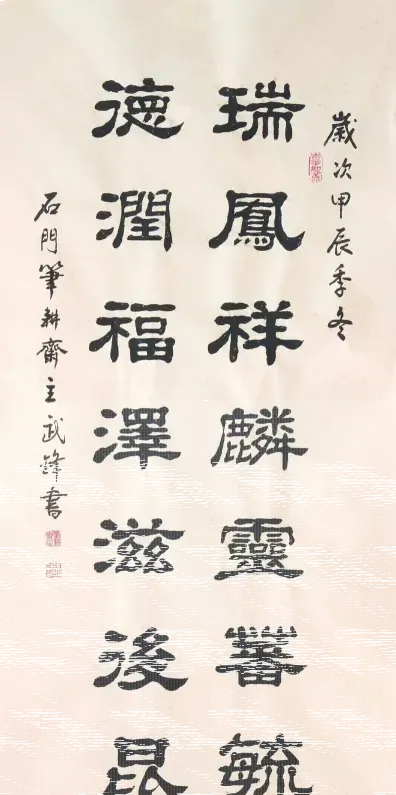 歲次甲辰季冬
瑞鳳祥麟靈蕃毓
德潤福澤滋後昆
石門筆耕齋主武鋒書